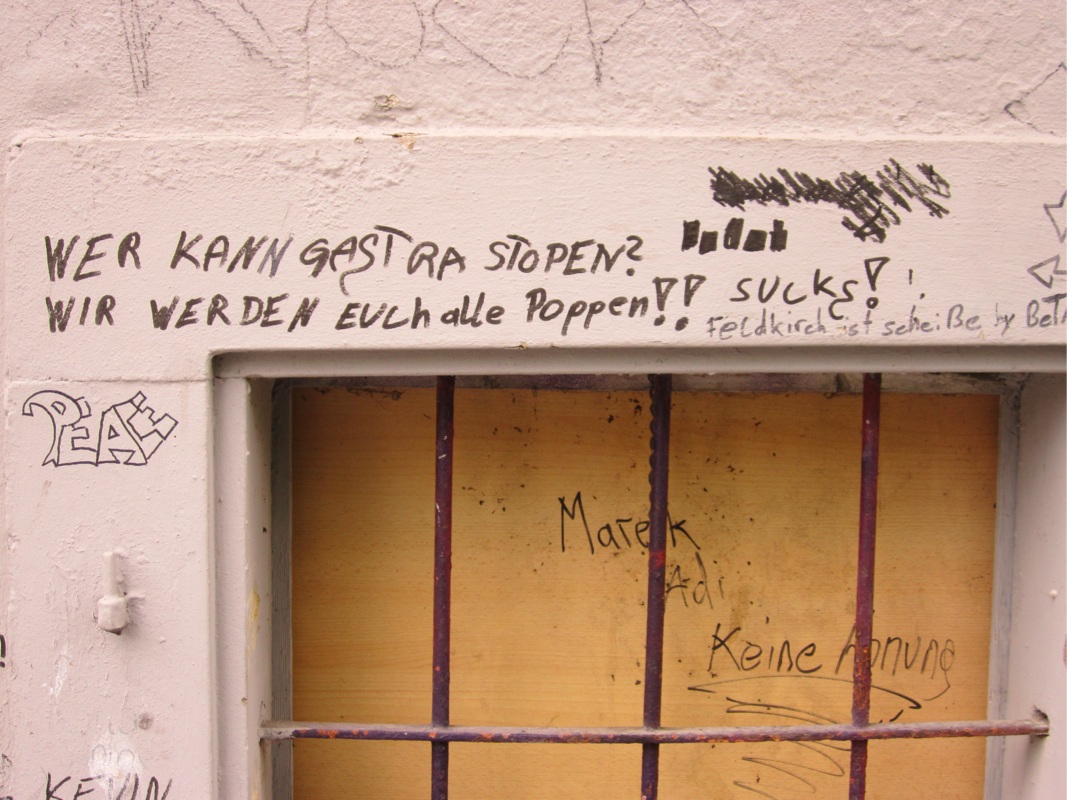 WER KANN GASTRA STOPEN?
WIR WERDEN EUCh alle Poppen!!
SUCKS!
Feldkirch ist scheiße by BeTA
PEACE
Marek
Adi
Keine Ahnung
KEVIN